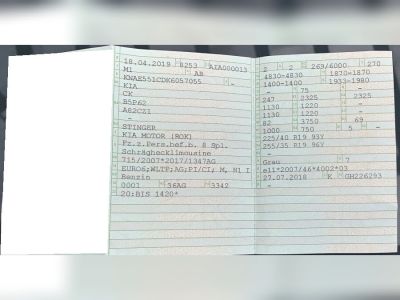 18.04.2019 8253 AIA000013
M1 AB
KWAE551CDK6057055 -
KIA
CK
B5P62
A62CZ1
-
STINGER
KIA MOTOR (ROK)
Fz.z.Pers.bef.b. 8 Spl.
Schräghecklimousine
715/2007*2017/1347AG
EURO6;WLTP;AG;PI/CI; M, N1 I
Benzin
0001 36AG 3342
20:BIS 1420*
2 2 269/6000 270
4830-4830 1870-1870
1400-1400 1933-1980
- 75 -
247 2325 2325
1130 1220 -
1130 1220 -
82 3750 69
1000 750 5 -
225/40 R19 93Y
255/35 R19 96Y
-
Grau 7
e11*2007/46*4002*03
27.07.2018 K GH226293
-